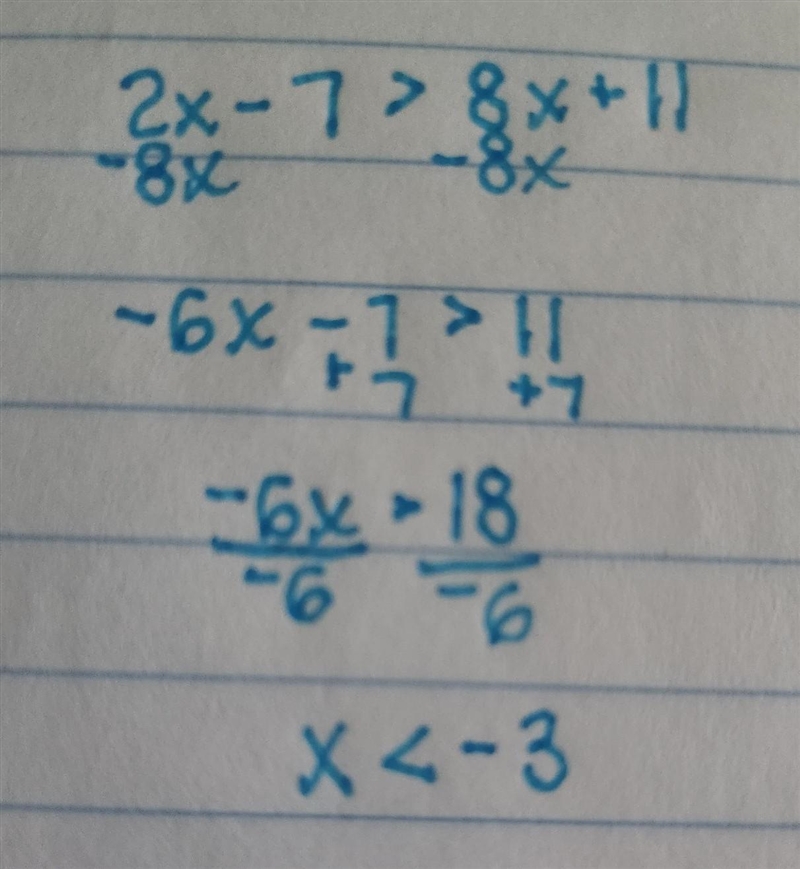 2x - 7 > 8x + 11
-8x -8x
-6x - 7 > 11
+7 +7
-6x > 18
-6 -6
x < -3